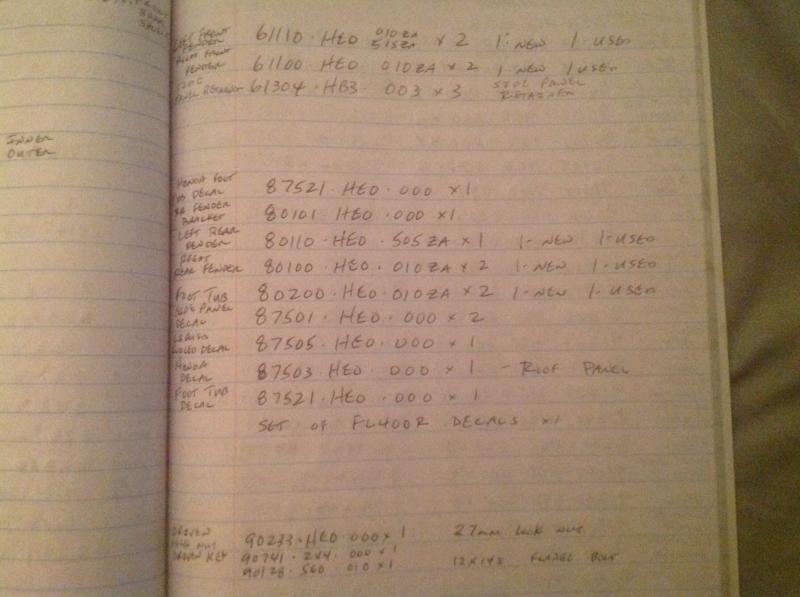 INNER
OUTER
LEFT FRONT FENDER 61110 · HEO 010ZA 515ZA × 2 1· NEW 1· USED
FRONT FENDER 61100 · HEO 010ZA × 2 1 NEW 1 USED
61304 · HB3 · 003 × 3 SIDE PANEL RETAINER
HONDA FOOT TUB DECAL 87521 · HEO · 000 × 1
RR FENDER BRACKET 80101 · HEO · 000 × 1
LEFT REAR FENDER 80110 · HEO · 505ZA × 1 1- NEW 1-USED
RIGHT REAR FENDER 80100 · HEO · 010ZA × 2 1- NEW 1- USED
FOOT TUB 80200 · HEO · 010ZA × 2 1- NEW 1- USED
SIDE PANEL DECAL 87501 · HEO · 000 × 2
DECAL 87505 · HEO · 000 × 1
HONDA DECAL 87503 · HEO · 000 × 1 - ROOF PANEL
FOOT TUB DECAL 87521 · HEO · 000 × 1
SET OF FL400R DECALS ×1
DRIVEN NUT 90233 · HEO 000 × 1 27mm LOCK NUT
DRIVEN KEY 90741 · 2V4 · 000 × 1
90128 · 560 · 010 × 1 12×143 FLANGE BOLT